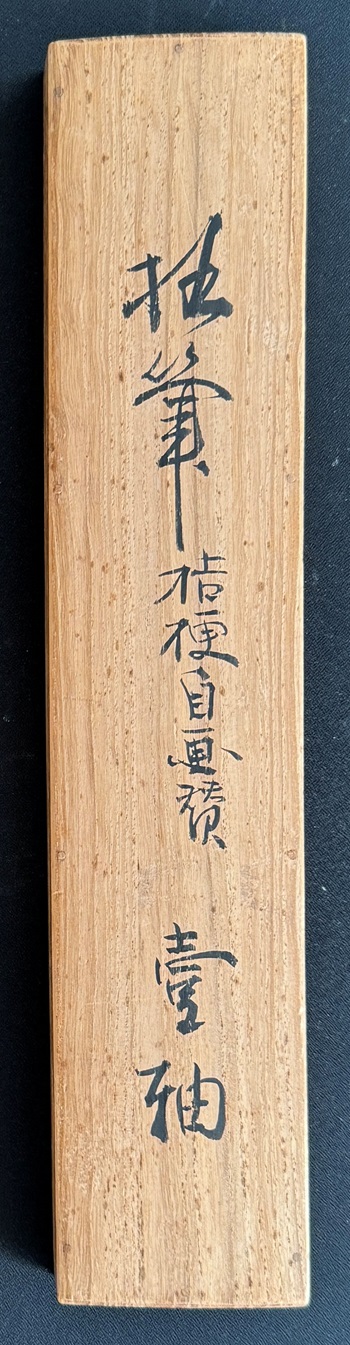 拙筆 桔梗自画賛 壹軸